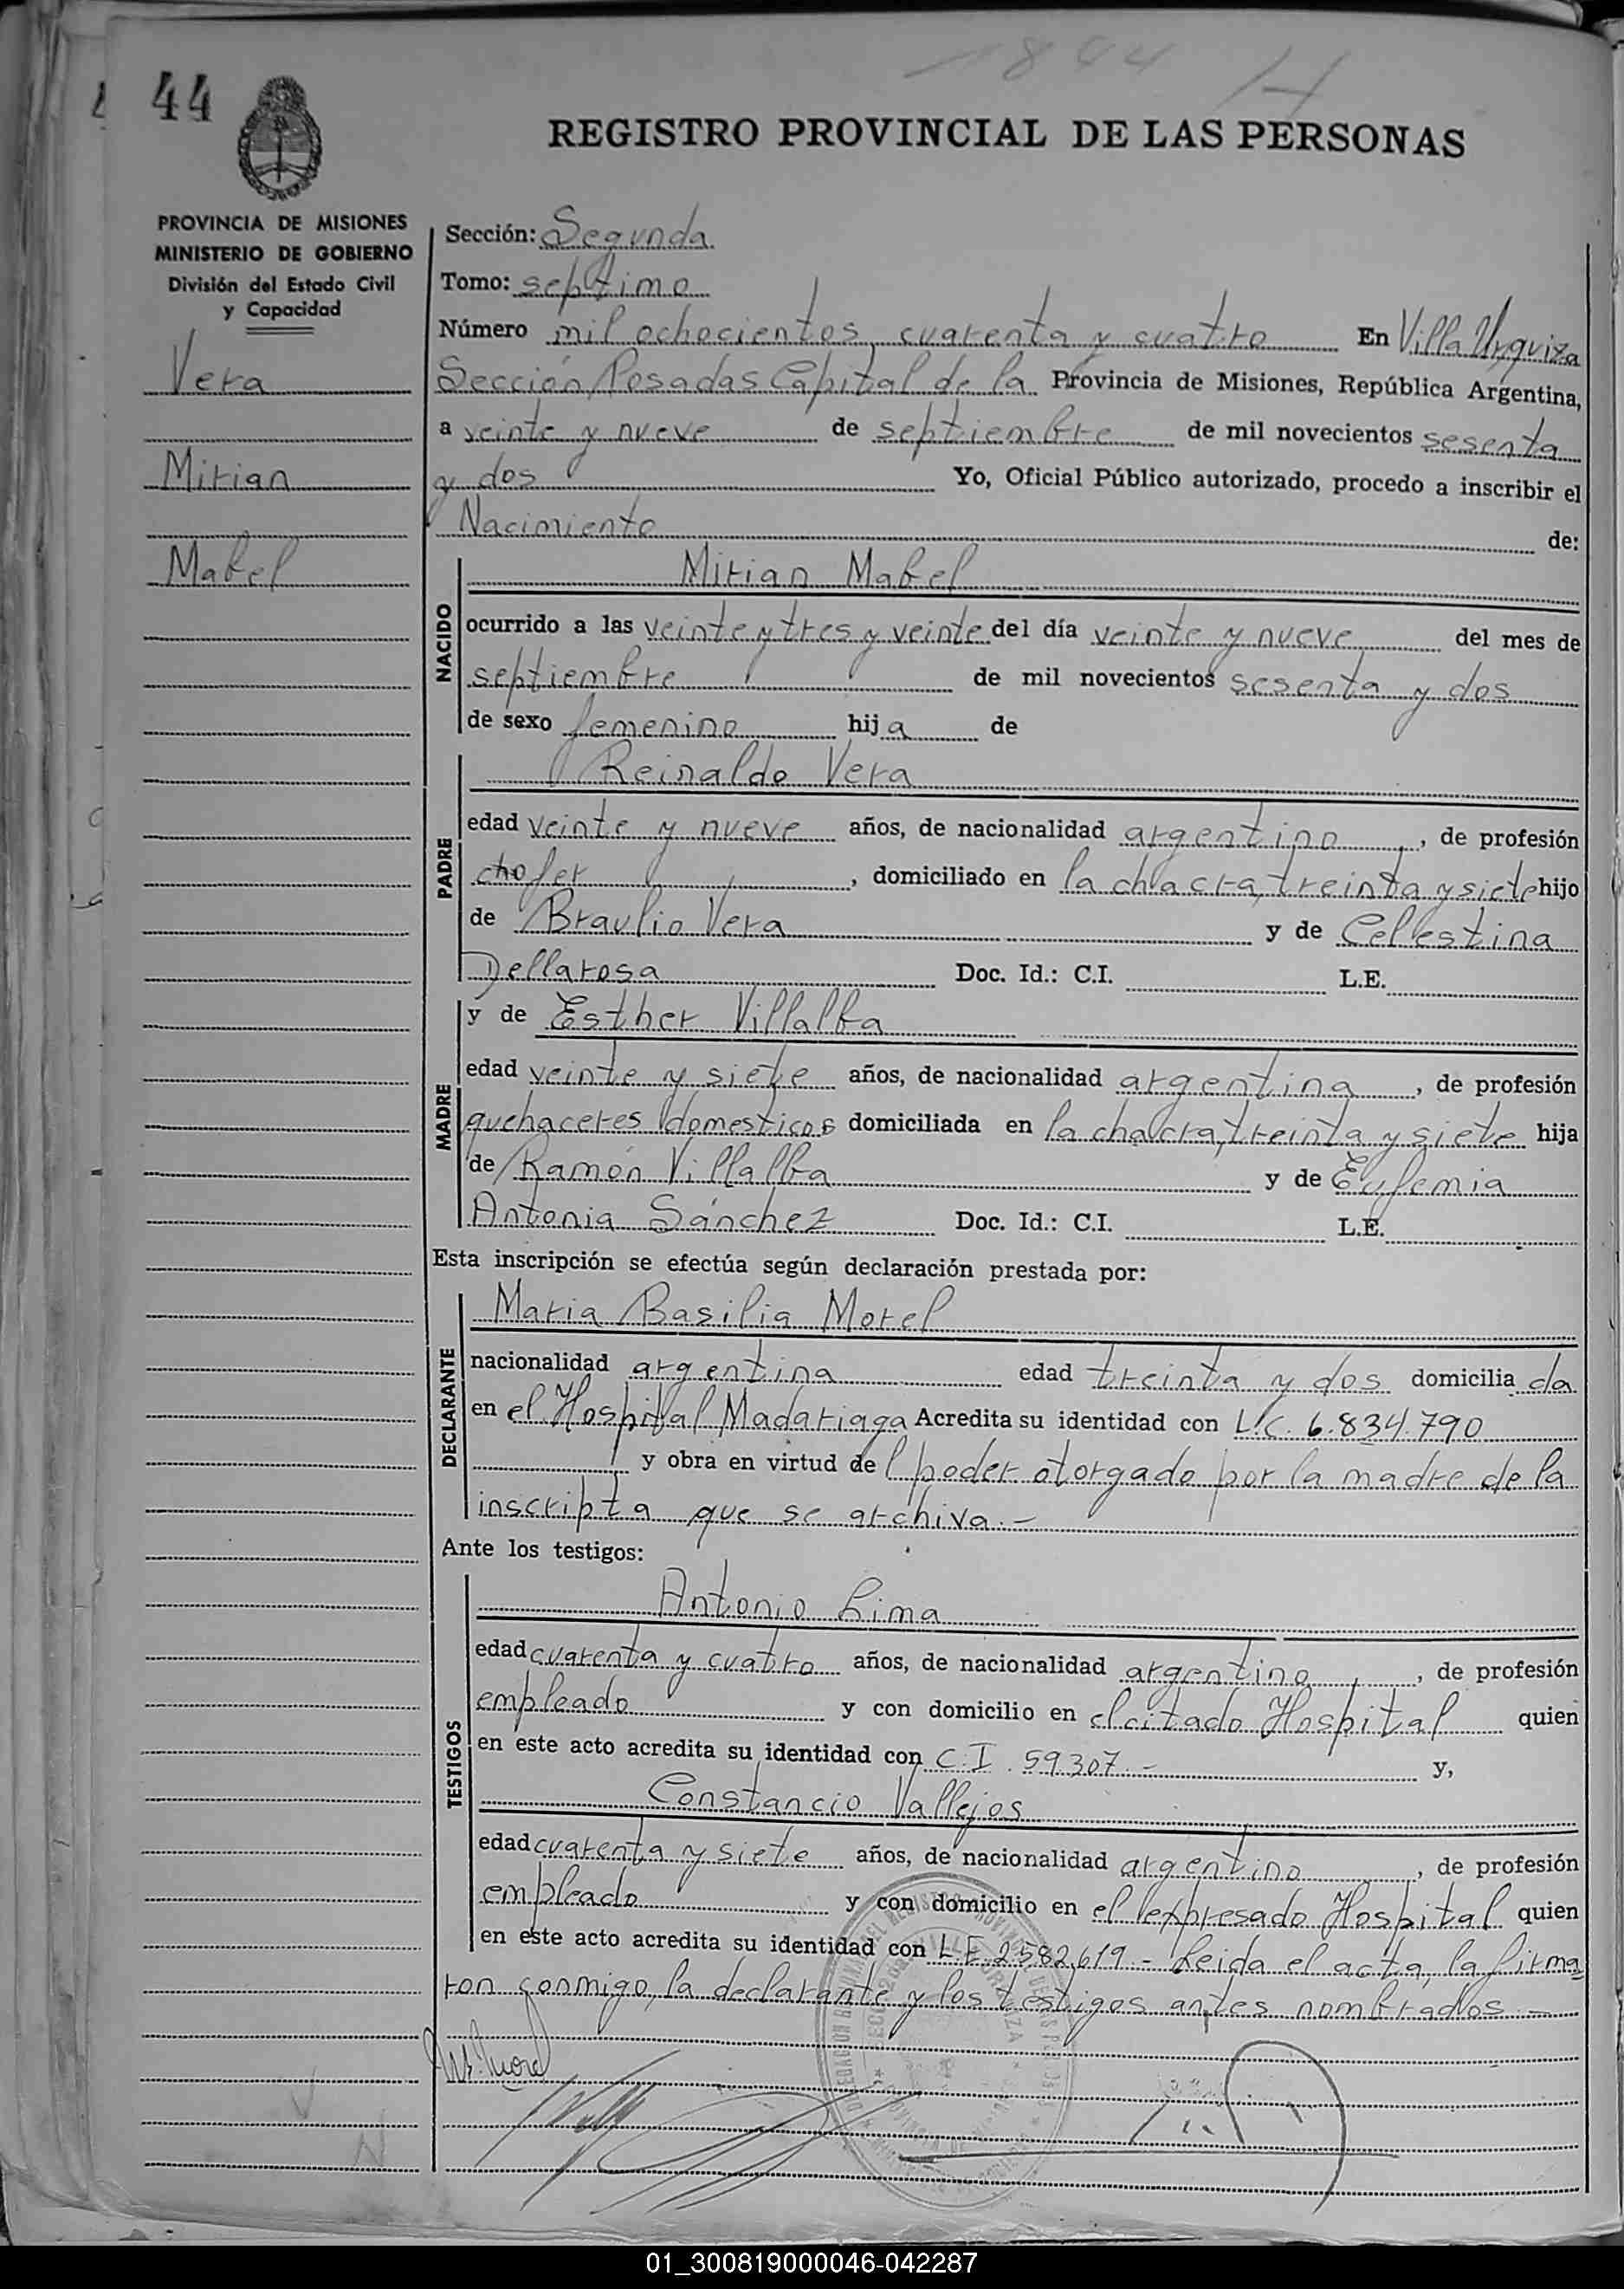 1844 H
44
REGISTRO PROVINCIAL DE LAS PERSONAS
PROVINCIA DE MISIONES
MINISTERIO DE GOBIERNO
División del Estado Civil
y Capacidad
Vera
Mirian
Mabel
Sección: Segunda
Tomo: septimo
Número mil ochocientos cuarenta y cuatro En Villa Urquiza
Sección Posadas Capital de la Provincia de Misiones, República Argentina,
a veinte y nueve de septiembre de mil novecientos sesenta
y dos Yo, Oficial Público autorizado, procedo a inscribir el
Nacimiento de:
NACIDO
Mirian Mabel
ocurrido a las veinte y tres y veinte del día veinte y nueve del mes de
septiembre de mil novecientos sesenta y dos
de sexo femenino hija de
PADRE
Reinaldo Vera
edad veinte y nueve años, de nacionalidad argentino, de profesión
chofer, domiciliado en la chacra, treinta y siete hijo
de Braulio Vera y de Celestina
Dellarosa Doc. Id.: C.I. L.E.
MADRE
y de Esther Villalba
edad veinte y siete años, de nacionalidad argentina, de profesión
quehaceres domesticos domiciliada en la chacra, treinta y siete hija
de Ramón Villalba y de Eufemia
Antonia Sánchez Doc. Id.: C.I. L.E.
Esta inscripción se efectúa según declaración prestada por:
DECLARANTE
Maria Basilia Morel
nacionalidad argentina edad treinta y dos domiciliada
en el Hospital Madariaga Acredita su identidad con L.C. 6.834.790
y obra en virtud del poder otorgado por la madre de la
inscripta que se archiva.-
Ante los testigos:
TESTIGOS
Antonio Lima
edad cuarenta y cuatro años, de nacionalidad argentino, de profesión
empleado y con domicilio en el citado Hospital quien
en este acto acredita su identidad con C.I. 59.307.- y,
Constancio Vallejos
edad cuarenta y siete años, de nacionalidad argentino, de profesión
empleado y con domicilio en el expresado Hospital quien
en este acto acredita su identidad con L.E. 2.582.619.- Leida el acta, la firma
ron conmigo, la declarante y los testigos antes nombrados.-
01_300819000046-042287